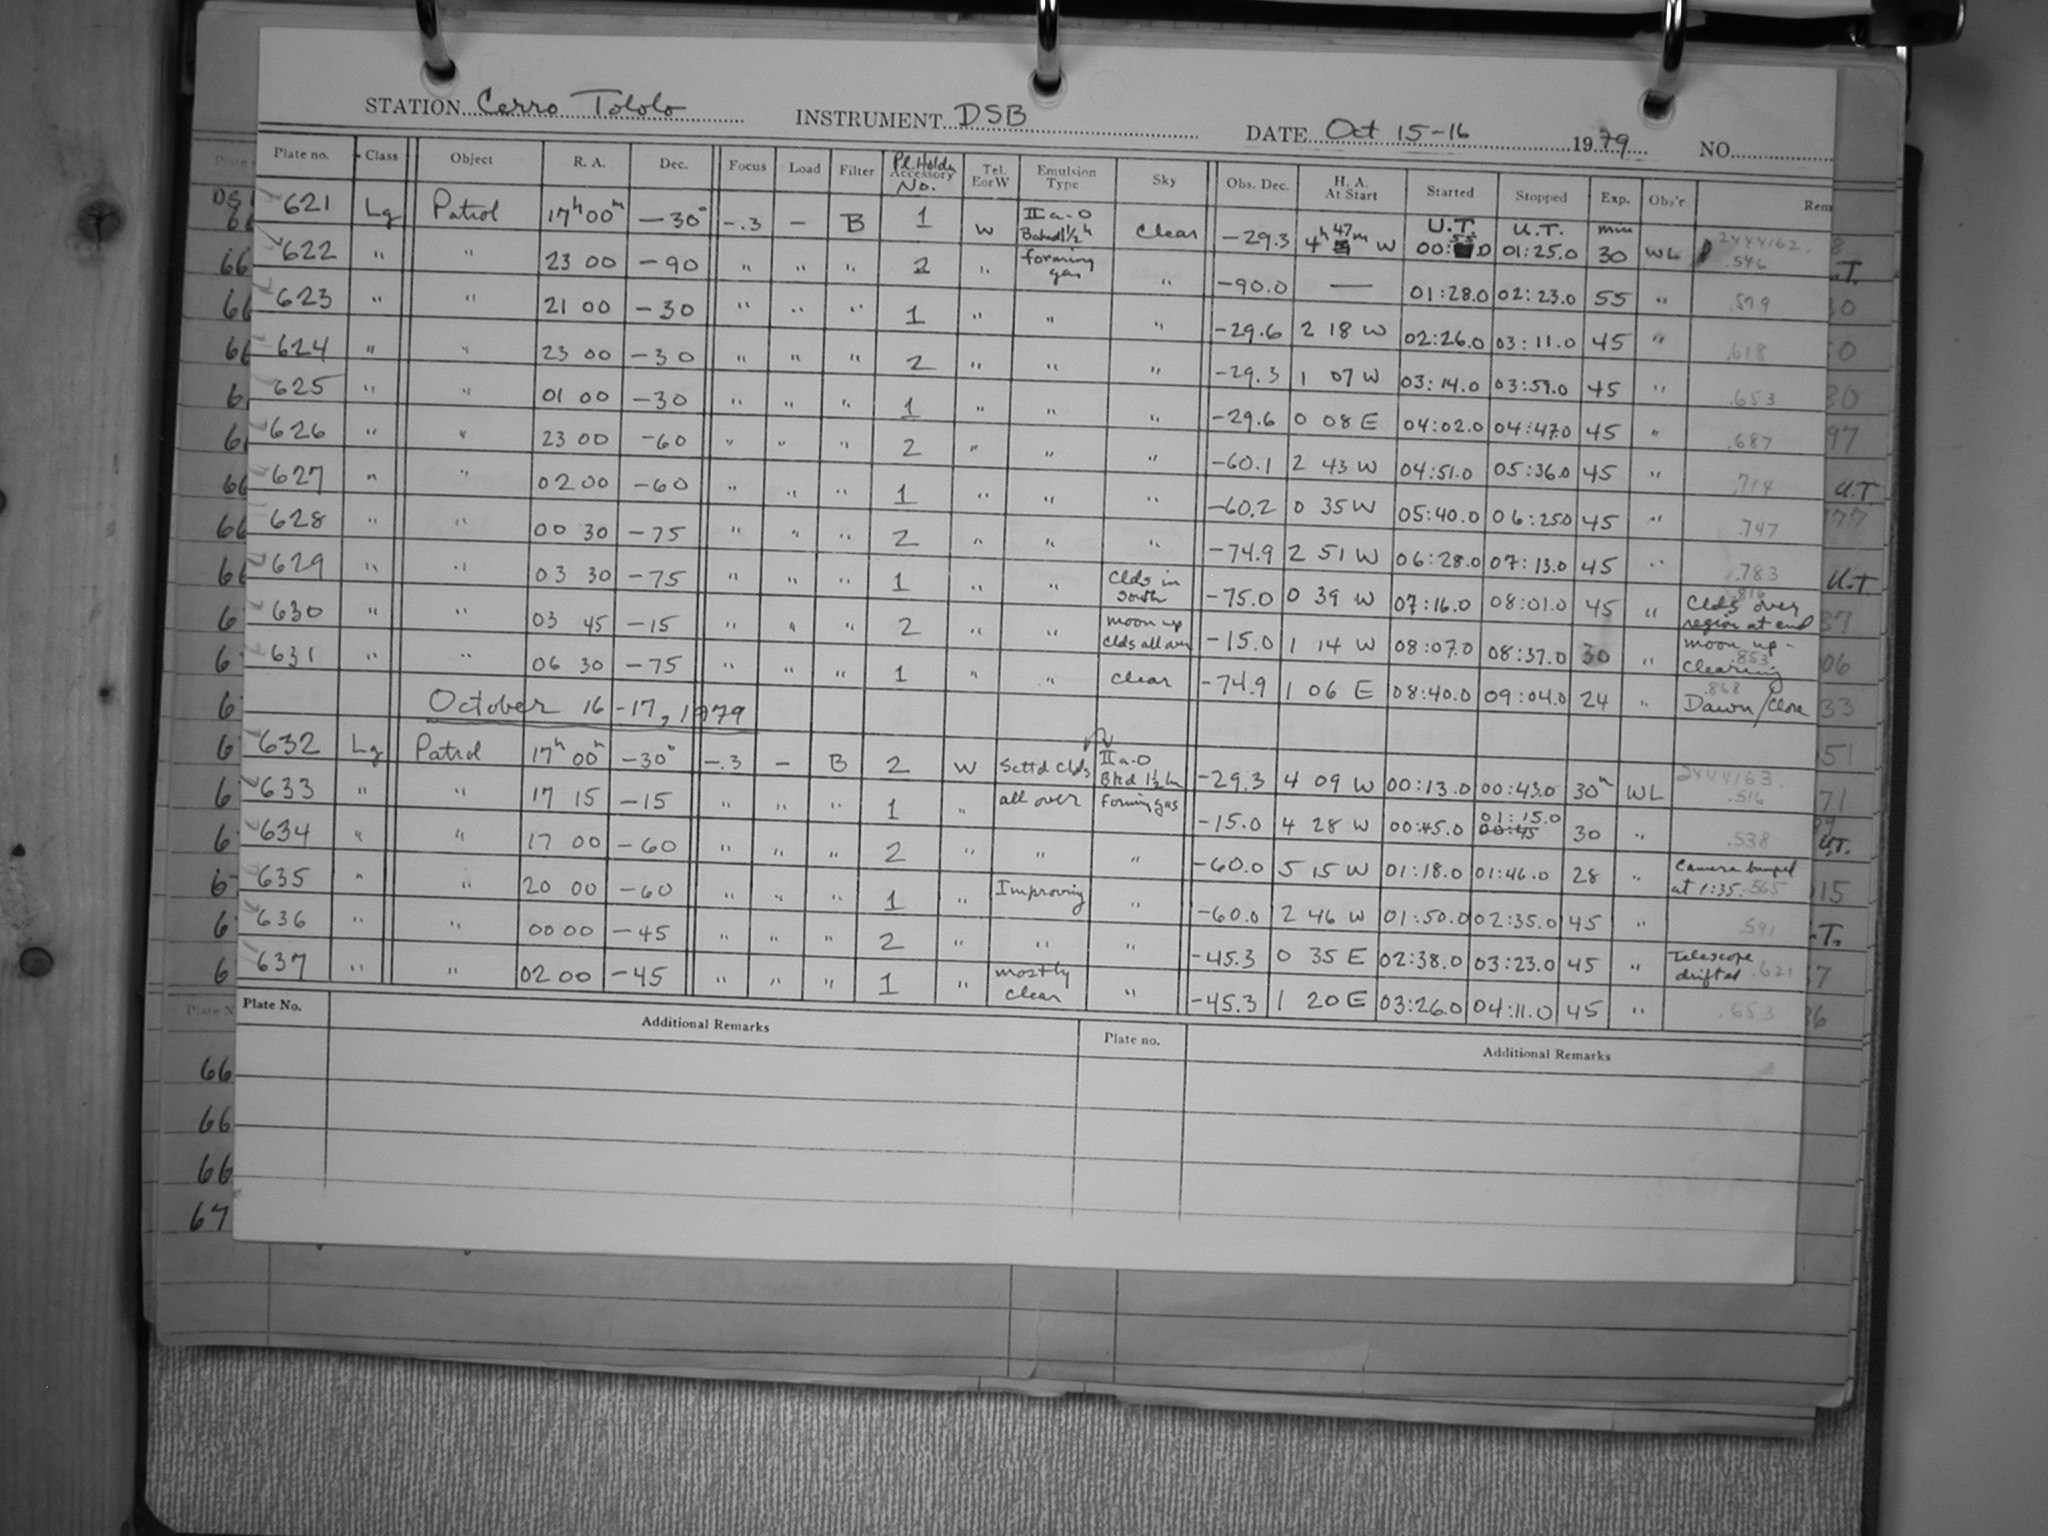 STATION Cerro Tololo INSTRUMENT DSB DATE Oct 15-16 1979 NO.
Plate no. Class Object R. A. Dec. Focus Load Filter Pl. Holds Accessory No. Tel. E or W Emulsion Type Sky Obs. Dec. H. A. At Start Started Stopped Exp. Obs'r Rem
621 Lg Patrol 17h 00m -30° -.3 - B 1 W IIa-O Baked 1½ h Clear -29.3 4h 47m W U.T. 00:55.0 U.T. 01:25.0 min 30 WL 2444162. .546
622 " " 23 00 -90 " " " 2 " forming gas " -90.0 — 01:28.0 02:23.0 55 " .579
623 " " 21 00 -30 " " " 1 " " " -29.6 2 18 W 02:26.0 03:11.0 45 " .618
624 " " 23 00 -30 " " " 2 " " " -29.3 1 07 W 03:14.0 03:59.0 45 " .653
625 " " 01 00 -30 " " " 1 " " " -29.6 0 08 E 04:02.0 04:47.0 45 " .687
626 " " 23 00 -60 " " " 2 " " " -60.1 2 43 W 04:51.0 05:36.0 45 " .714
627 " " 02 00 -60 " " " 1 " " " -60.2 0 35 W 05:40.0 06:25.0 45 " .747
628 " " 00 30 -75 " " " 2 " " " -74.9 2 51 W 06:28.0 07:13.0 45 " .783
629 " " 03 30 -75 " " " 1 " " Clds in South -75.0 0 39 W 07:16.0 08:01.0 45 " .816 Clds over region at end
630 " " 03 45 -15 " " " 2 " " moon up Clds all over -15.0 1 14 W 08:07.0 08:37.0 30 " moon up - Clearing .853
631 " " 06 30 -75 " " " 1 " " Clear -74.9 1 06 E 08:40.0 09:04.0 24 " .868 Dawn/Close
October 16-17, 1979
632 Lg Patrol 17h 00m -30° -.3 - B 2 W Scttd Clds IIa-O Bkd 1½ hr -29.3 4 09 W 00:13.0 00:43.0 30m WL 2444163. .516
633 " " 17 15 -15 " " " 1 " all over Forming gas -15.0 4 28 W 00:45.0 00:45 01:15.0 30 " .538
634 " " 17 00 -60 " " " 2 " " " -60.0 5 15 W 01:18.0 01:46.0 28 " Camera bumped at 1:35. .565
635 " " 20 00 -60 " " " 1 " Improving " -60.0 2 46 W 01:50.0 02:35.0 45 " .591
636 " " 00 00 -45 " " " 2 " " " -45.3 0 35 E 02:38.0 03:23.0 45 " Telescope drifted .621
637 " " 02 00 -45 " " " 1 " mostly clear " -45.3 1 20 E 03:26.0 04:11.0 45 " .653
Plate No. Additional Remarks Plate no. Additional Remarks
66
66
66
67